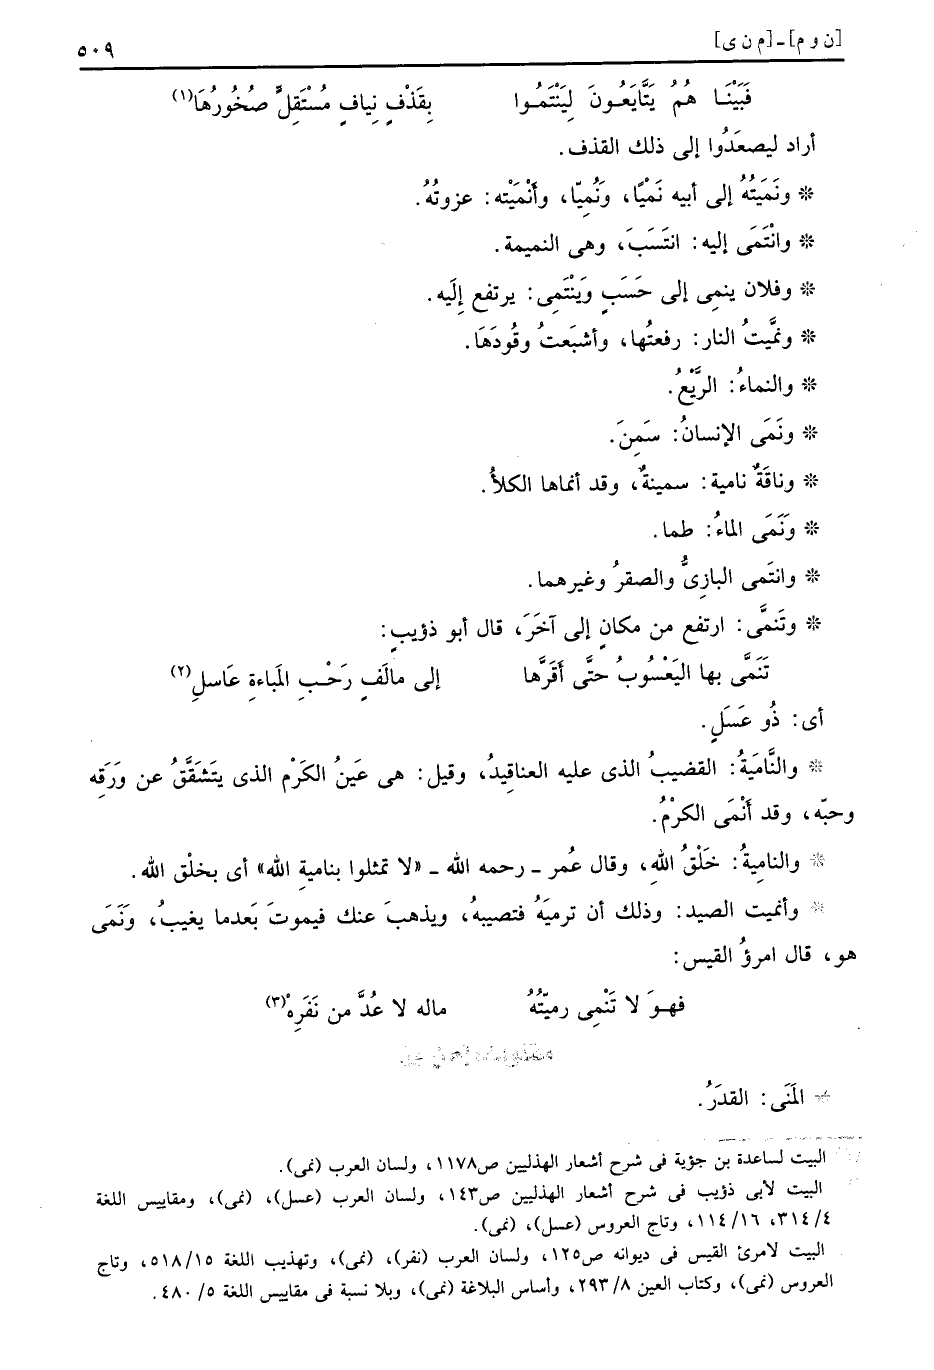 [ن و م] - [م ن ى] ٥٠٩
فَبَيْنَا هُمُ يَتَّايَعُونَ لِيَنْتَمُوا بِقَذْفِ نِيافٍ مُسْتَقِلٍّ صُخُورُهَا(١)
أراد ليصعَدُوا إلى ذلك القذف.
* ونَمَيتُهُ إلى أبيه نَمْيًا، ونُمِيّا، وأَنْمَيْته: عزوتُهُ.
* وانْتَمَى إليه: انتَسَبَ، وهى النميمة.
* وفلان ينمِى إلى حَسَبٍ وَينْتَمِى: يرتفع إلَيه.
* ونمَّيتُ النار: رفعتُها، وأشبَعتُ وقُودَهَا.
* والنماءُ: الرَّيْعُ.
* ونَمَى الإنسانُ: سَمِنَ.
* وناقَةٌ نامية: سمينةٌ، وقد أنماها الكلأُ.
* وَنَمَى الماءُ: طما.
* وانتَمى البازِىُّ والصقرُ وغيرهما.
* وتَنمَّى: ارتفع من مكانٍ إلى آخَرَ، قال أبو ذؤيبٍ:
تَنَمَّى بها اليَعْسُوبُ حتَّى أَقَرَّها إلى مالَفٍ رَحْبِ المَباءةِ عَاسلِ(٢)
أى: ذُو عَسَلٍ.
* والنَّامَيةُ: القضيبُ الذى عليه العناقِيدُ، وقيل: هى عَينُ الكَرْم الذى يتَشَقَّقُ عن ورَقِه
وحبّه، وقد أَنْمَى الكرْمُ.
* والنامِيةُ: خَلْقُ اللهِ، وقال عُمر - رحمه الله - «لا تمثلوا بنامِيةِ الله» أى بخلْق الله.
* وأنميت الصيد: وذلك أن ترميَهُ فتصيبهُ، ويذهبَ عنك فيموتَ بَعدما يغيبُ، ونَمَى
هو، قال امرؤُ القيس:
فهـوَ لا تَنْمِى رميّتُهُ ماله لا عُدَّ من نَفَرِهْ(٣)
* المَنَى: القدَرُ.
البيت لساعدة بن جؤية فى شرح أشعار الهذليين ص١١٧٨، ولسان العرب (نمى).
البيت لأبى ذؤيب فى شرح أشعار الهذليين ص١٤٣، ولسان العرب (عسل)، (نمى)، ومقاييس اللغة
٤/٣١٤، ١٦/١١٤، وتاج العروس (عسل)، (نمى).
البيت لامرئ القيس فى ديوانه ص١٢٥، ولسان العرب (نفر)، (نمى)، وتهذيب اللغة ١٥/٥١٨، وتاج
العروس (نمى)، وكتاب العين ٨/٢٩٣، وأساس البلاغة (نمى)، وبلا نسبة فى مقاييس اللغة ٥/٤٨٠.